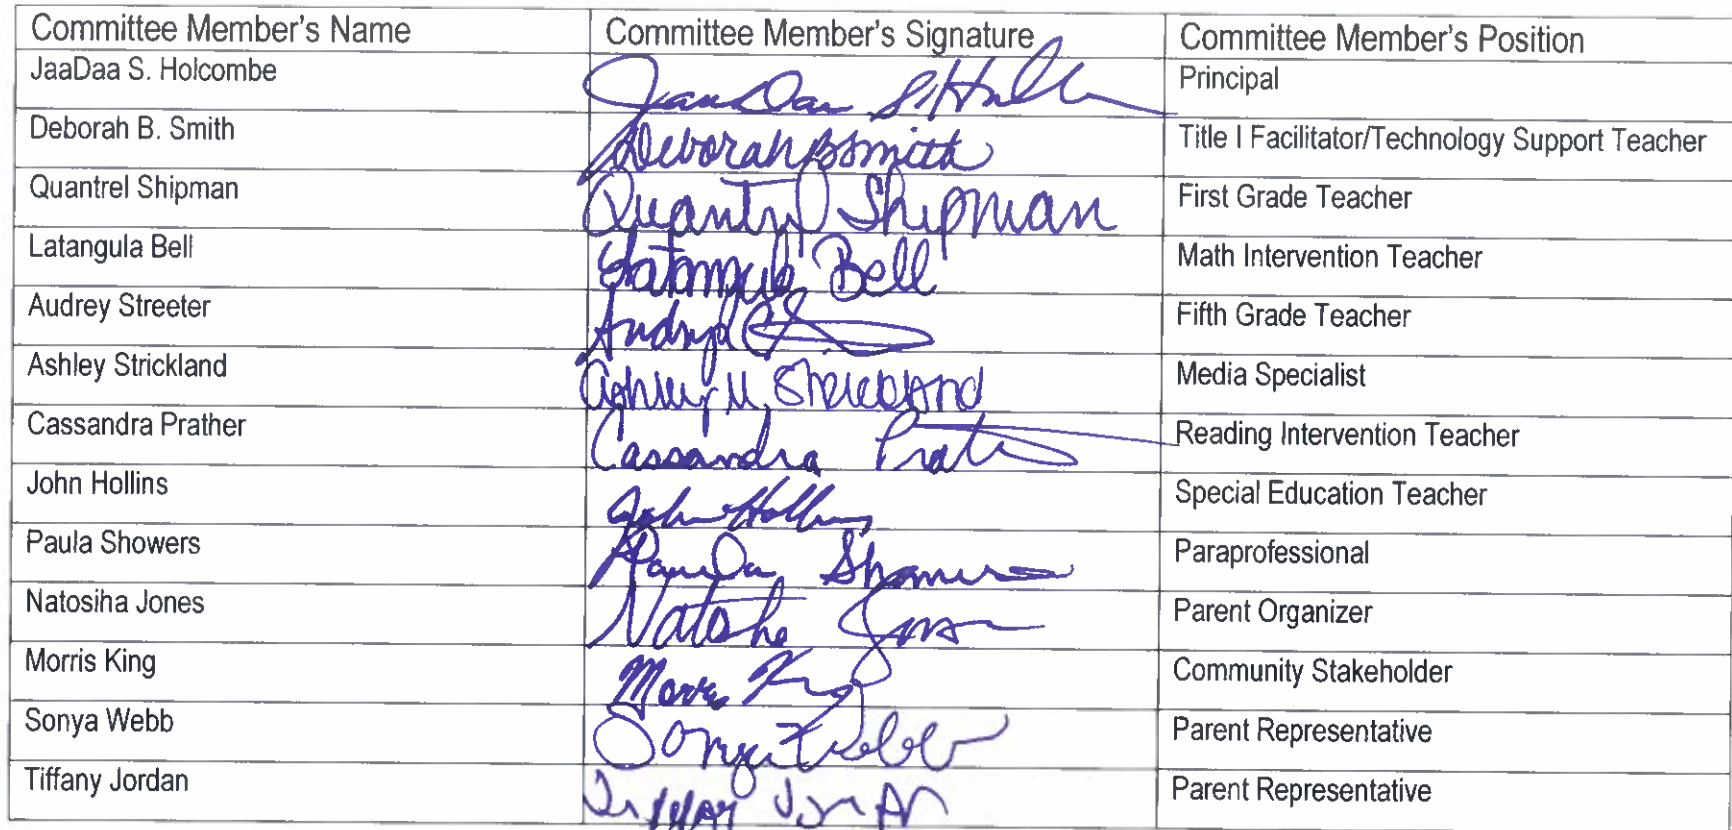 Committee Member's Name Committee Member's Signature Committee Member's Position
JaaDaa S. Holcombe JaaDaa S. Principal
Deborah B. Smith Deborah B Smith Title I Facilitator/Technology Support Teacher
Quantrel Shipman Quantrel Shipman First Grade Teacher
Latangula Bell Latangula Bell Math Intervention Teacher
Audrey Streeter Fifth Grade Teacher
Ashley Strickland Ashley M. Strickland Media Specialist
Cassandra Prather Cassandra Prather Reading Intervention Teacher
John Hollins John Hollins Special Education Teacher
Paula Showers Paula Showers Paraprofessional
Natosiha Jones Jones Parent Organizer
Morris King Morris King Community Stakeholder
Sonya Webb Sonya Webb Parent Representative
Tiffany Jordan Tiffany Jordan Parent Representative